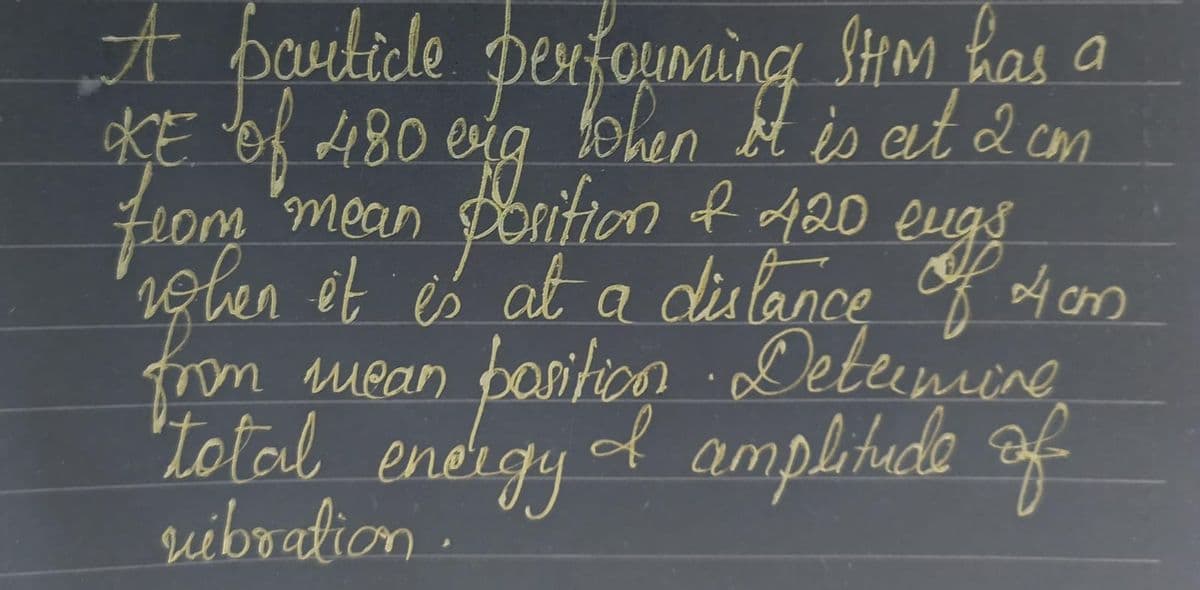 A particle performing SHM has a
KE of 480 erg when it is at 2 cm
from mean position & 420 ergs
when it is at a distance of 4 cm
from mean position. Determine
total energy & amplitude of
vibration.